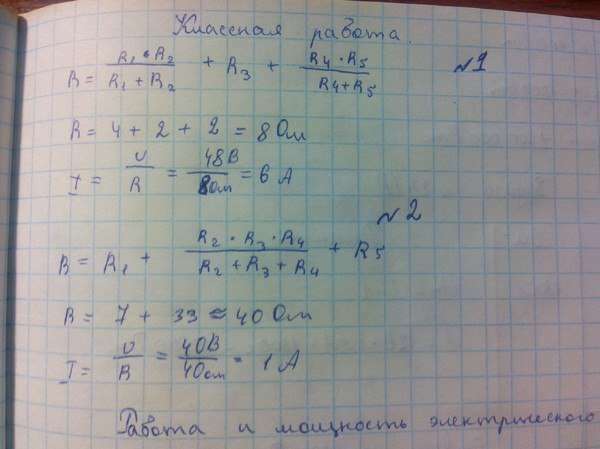 Классная работа.
R = R₁ • R₂ / R₁ + R₂ + R₃ + R₄ • R₅ / R₄ + R₅ №1
R = 4 + 2 + 2 = 8 Ом
I = U / R = 48В / 8Ом = 6 А
№2
R = R₁ + R₂ • R₃ • R₄ / R₂ + R₃ + R₄ + R₅
R = 7 + 33 ≈ 40 Ом
I = U / R = 40В / 40Ом = 1 А
Работа и мощность электрического